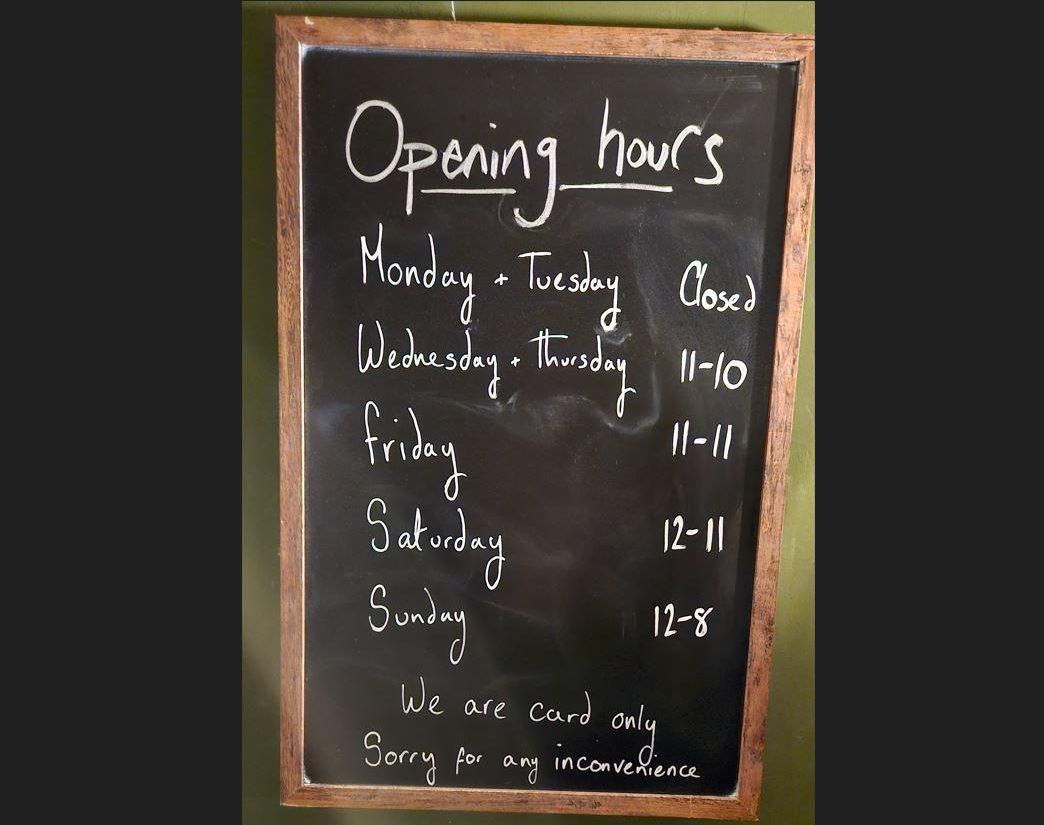 Opening hours
Monday + Tuesday Closed
Wednesday + Thursday 11-10
Friday 11-11
Saturday 12-11
Sunday 12-8
We are card only
Sorry for any inconvenience